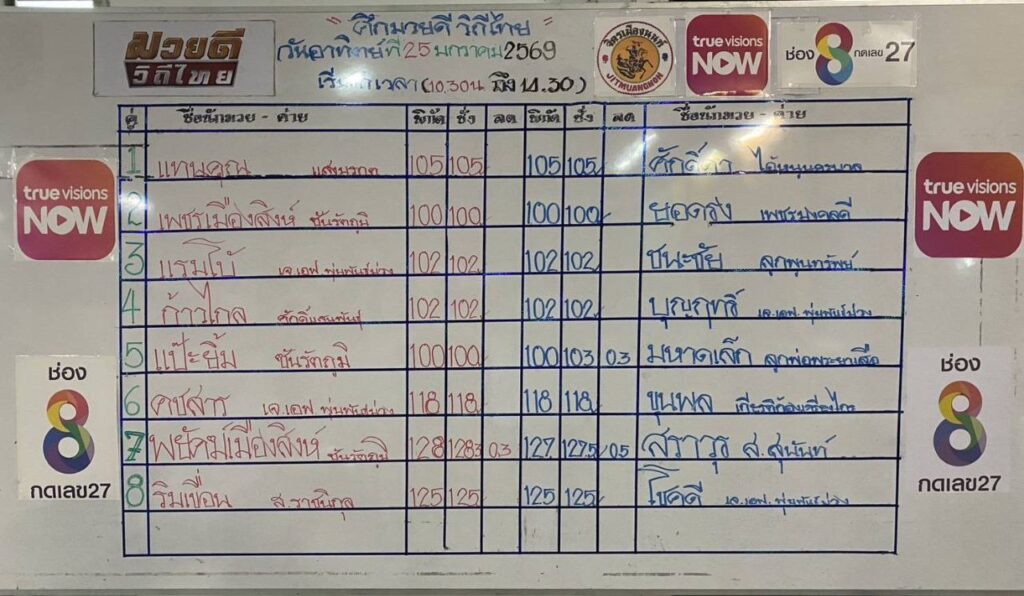 มวยดี
วิถีไทย
" ศึกมวยดี วิถีไทย "
วันอาทิตย์ที่ 25 มกราคม 2569
เวลา (10.30น ถึง 14.30)
จิตรเมืองนนท์
JITMUANGNON
true visions
NOW
ช่อง 8 กดเลข 27
คู่ ชื่อนักมวย - ค่าย พิกัด ชั่ง ลด พิกัด ชั่ง ลด ชื่อนักมวย - ค่าย
1 แทนคุณ 105 105 105 105
2 เพชรเมืองสิงห์ ซันรัตภูมิ 100 100 100 100 เพชรมงคลดี
3 แรมโบ้ เจ.เอฟ.พุ่มพันธ์ม่วง 102 102 102 102 ชนะชัย ลูกพูนทรัพย์
4 ก้าวไกล ศักดิ์แสนพันธุ์ 102 102 102 102 บุญฤทธิ์ เจ.เอฟ.พุ่มพันธ์ม่วง
5 แป๊ะยิ้ม ซันรัตภูมิ 100 100 100 103 0.3 มหาดเล็ก ลูกพ่อพระยาเสือ
6 คชสาร เจ.เอฟ.พุ่มพันธ์ม่วง 118 118 118 118 ขุนพล
7 พยัคฆ์เมืองสิงห์ ซันรัตภูมิ 128 128.3 0.3 127 127.5 0.5 สราวุธ ส.สุนันท์
8 ริมเขื่อน ส.ราชนิกุล 125 125 125 125 โชคดี เจ.เอฟ.พุ่มพันธ์ม่วง
true visions
NOW
true visions
NOW
ช่อง
8
กดเลข27
ช่อง
8
กดเลข27